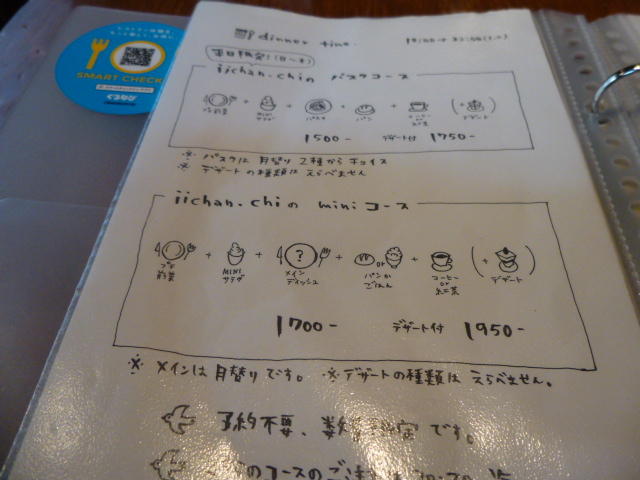 SMART CHECK
ぐるなび
dinner time
iichan.chiの パスタコース
前菜 + MINI サラダ + パスタ + パン + コーヒー or 紅茶 (+ デザート)
1500- デザート付 1750-
※ パスタは 月替り 2種から チョイス
※ デザートの種類は えらべません
iichan.chiの miniコース
プチ前菜 + MINI サラダ + ? メインディッシュ + パンか or ごはん + コーヒー or 紅茶 (+ デザート)
1700- デザート付 1950-
※ メインは月替りです。 ※ デザートの種類は えらべません。
予約不要、数 限定です。
のコースのご注